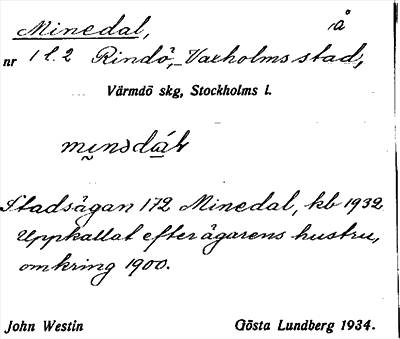 Minedal, å
nr 1 l. 2 Rindö, Vaxholms stad,
Värmdö skg, Stockholms l.
Stadsägan 172 Minedal, kb 1932.
Uppkallat efter ägarens hustru,
omkring 1900.
John Westin Gösta Lundberg 1934.